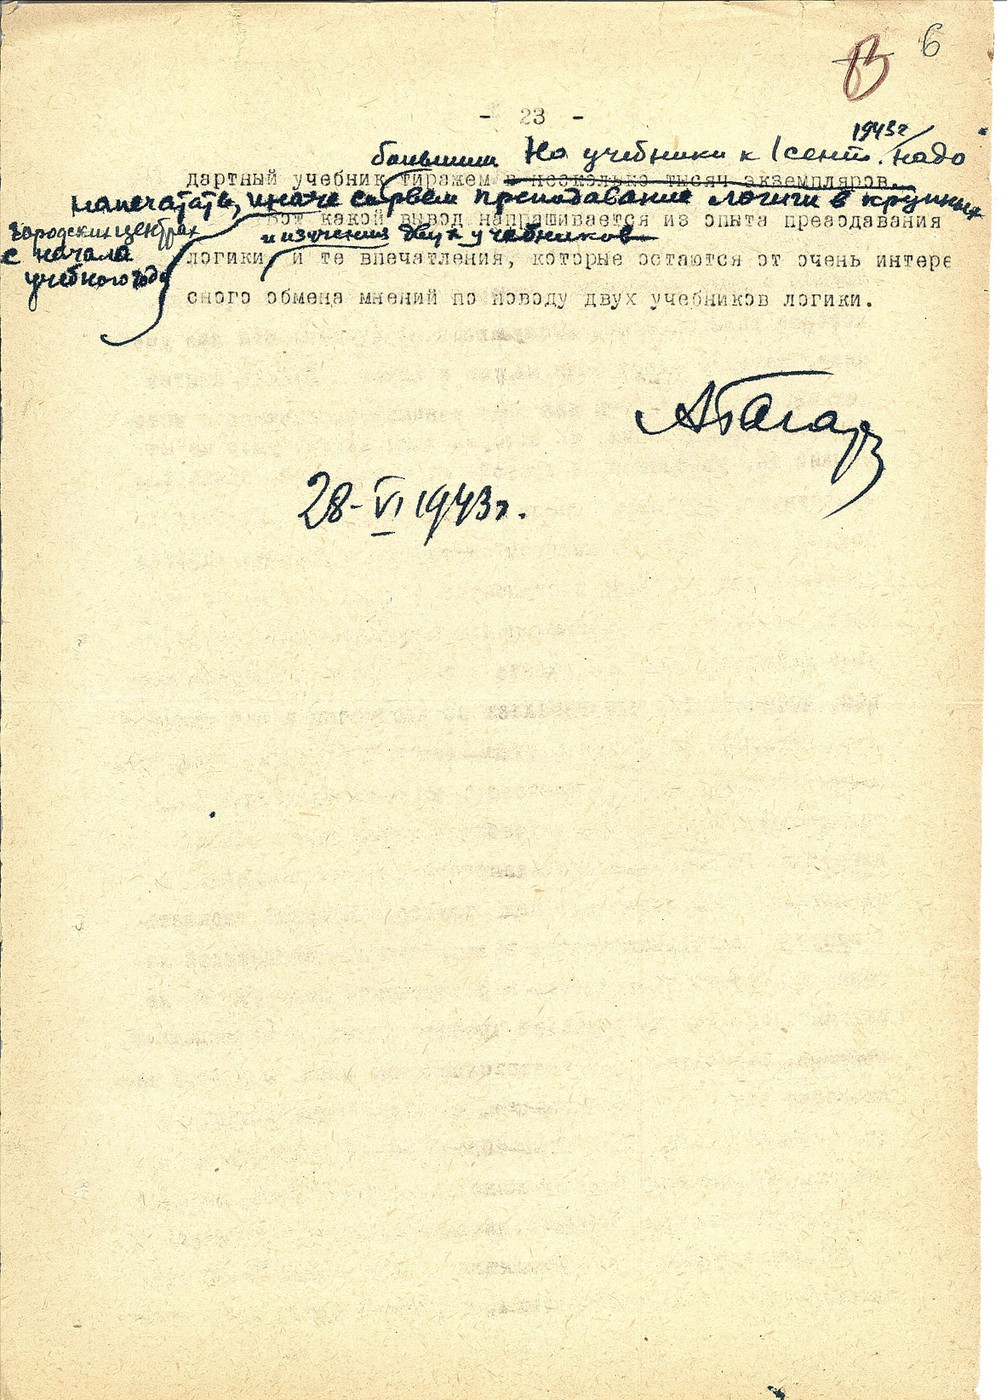 6
- 23 -
1943г
большим Но учебники к 1 сент. надо
дартный учебник тиражем в несколько тысяч экземпляров.
напечатать, иначе сорвем преподавание логики в крупных
городских центрах
с начала
учебного года
Вот какой вывод напрашивается из опыта преподавания
и изучения двух учебников
логики и те впечатления, которые остаются от очень интере
сного обмена мнений по поводу двух учебников логики.
28-VI 1943г.